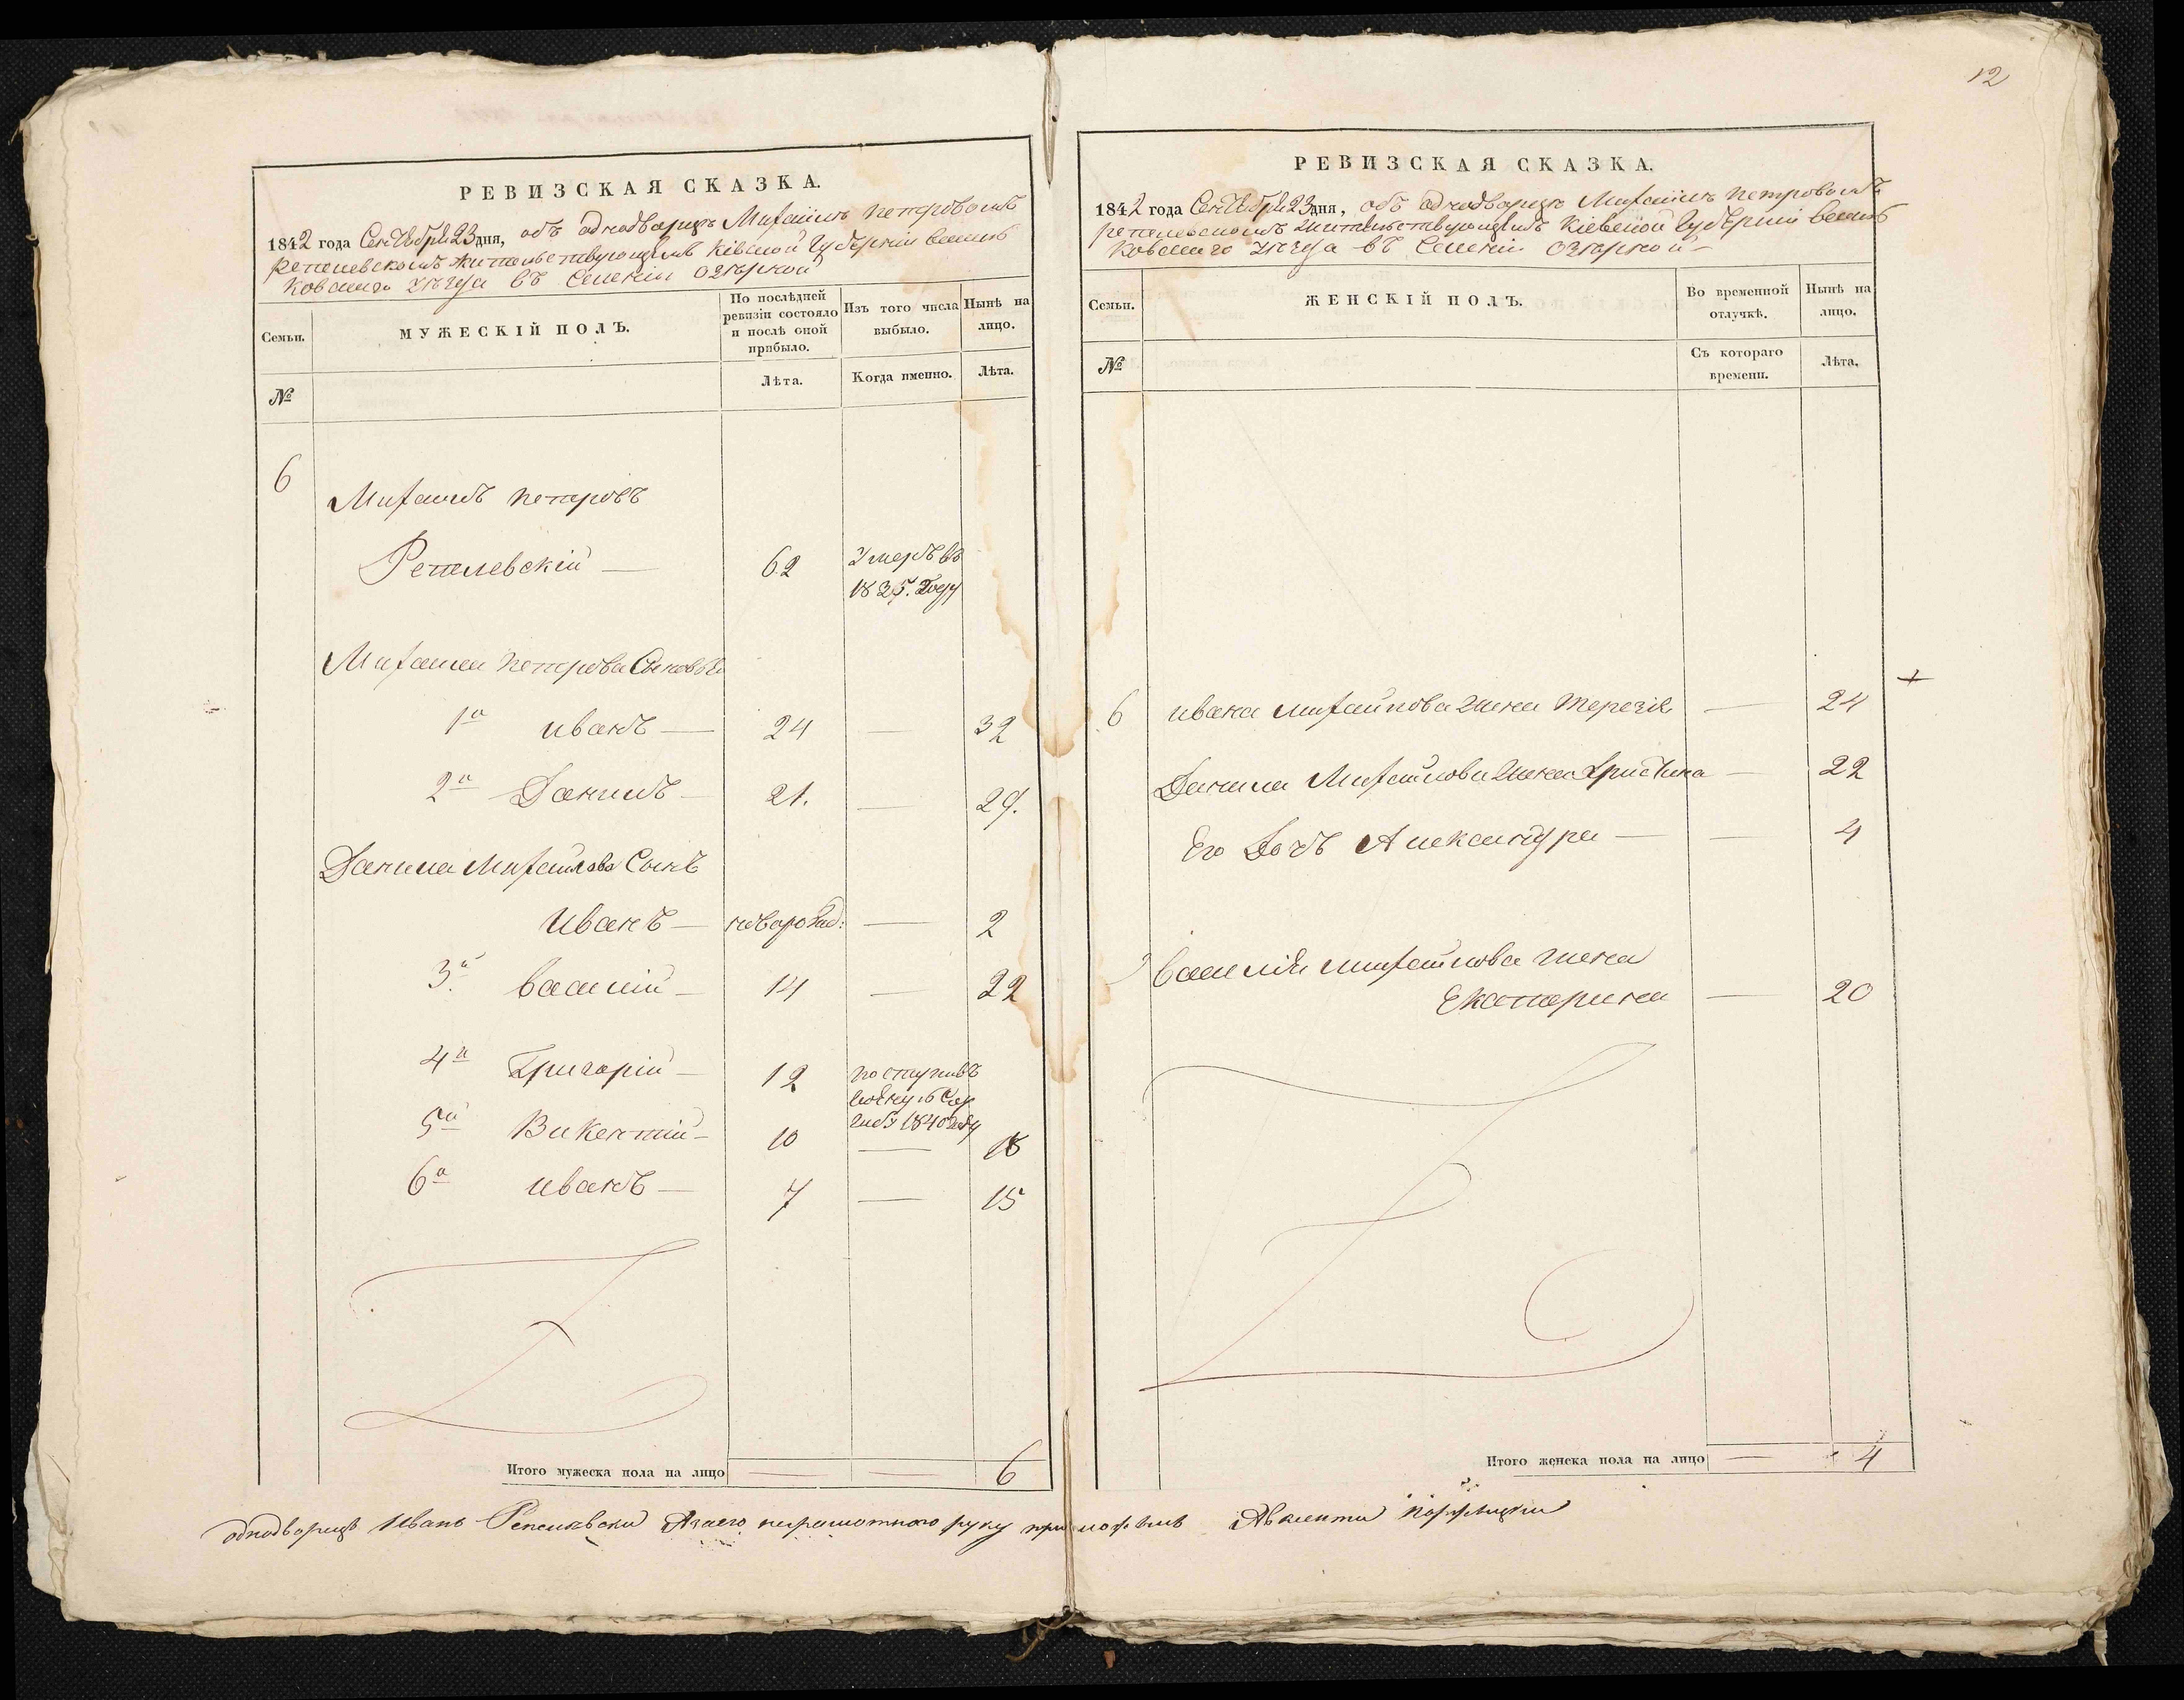 12
РЕВИЗСКАЯ СКАЗКА.
1842 года Сентября 23 дня, объ аднодворцѣ Михаилѣ Петровомъ
Репелевскомъ жительствующимъ Кіевской Губерніи Василь
ковского уѣзда въ Селеніи Озѣрной
Семьи.
МУЖЕСКІЙ ПОЛЪ.
По послѣдней ревизіи состояло и послѣ оной прибыло.
Изъ того числа выбыло.
Нынѣ на лицо.
№
Лѣта.
Когда именно.
Лѣта.
6
Михаилъ Петровъ
Репелевскій — 62 Умеръ въ
1835. Году
Михаила Петрова Сыновья
1й Иванъ — 24 — 32
2й Данилъ — 21. — 29.
Данила Михайлова Сынъ
Иванъ — новарожд: — 2
3й Василій — 14 — 22
4й Григорій — 12 поступивъ
1840 году
5й Викентій — 10 — 18
6й Иванъ — 7 — 15
Итого мужеска пола на лицо — — 6
РЕВИЗСКАЯ СКАЗКА.
1842 года Сентября 23 дня, объ аднодворцѣ Михаилѣ Петровомъ
Репелевскомъ жительствующимъ Кіевской Губерніи Василь
ковского уѣзда въ Селеніи Озѣрной —
Семьи.
ЖЕНСКІЙ ПОЛЪ.
Во временной отлучкѣ.
Нынѣ на лицо.
№
Съ котораго времени.
Лѣта.
6 Ивана Михайлова жена Терезія — 24
Данила Михайлова жена Христина — 22
Его Дочь Александра — — 4
Василія Михайлова жена
Екатерина — 20
Итого женска пола на лицо — 4
однодворецъ Иванъ Репелявски Азаего неграмотного руку приложилъ